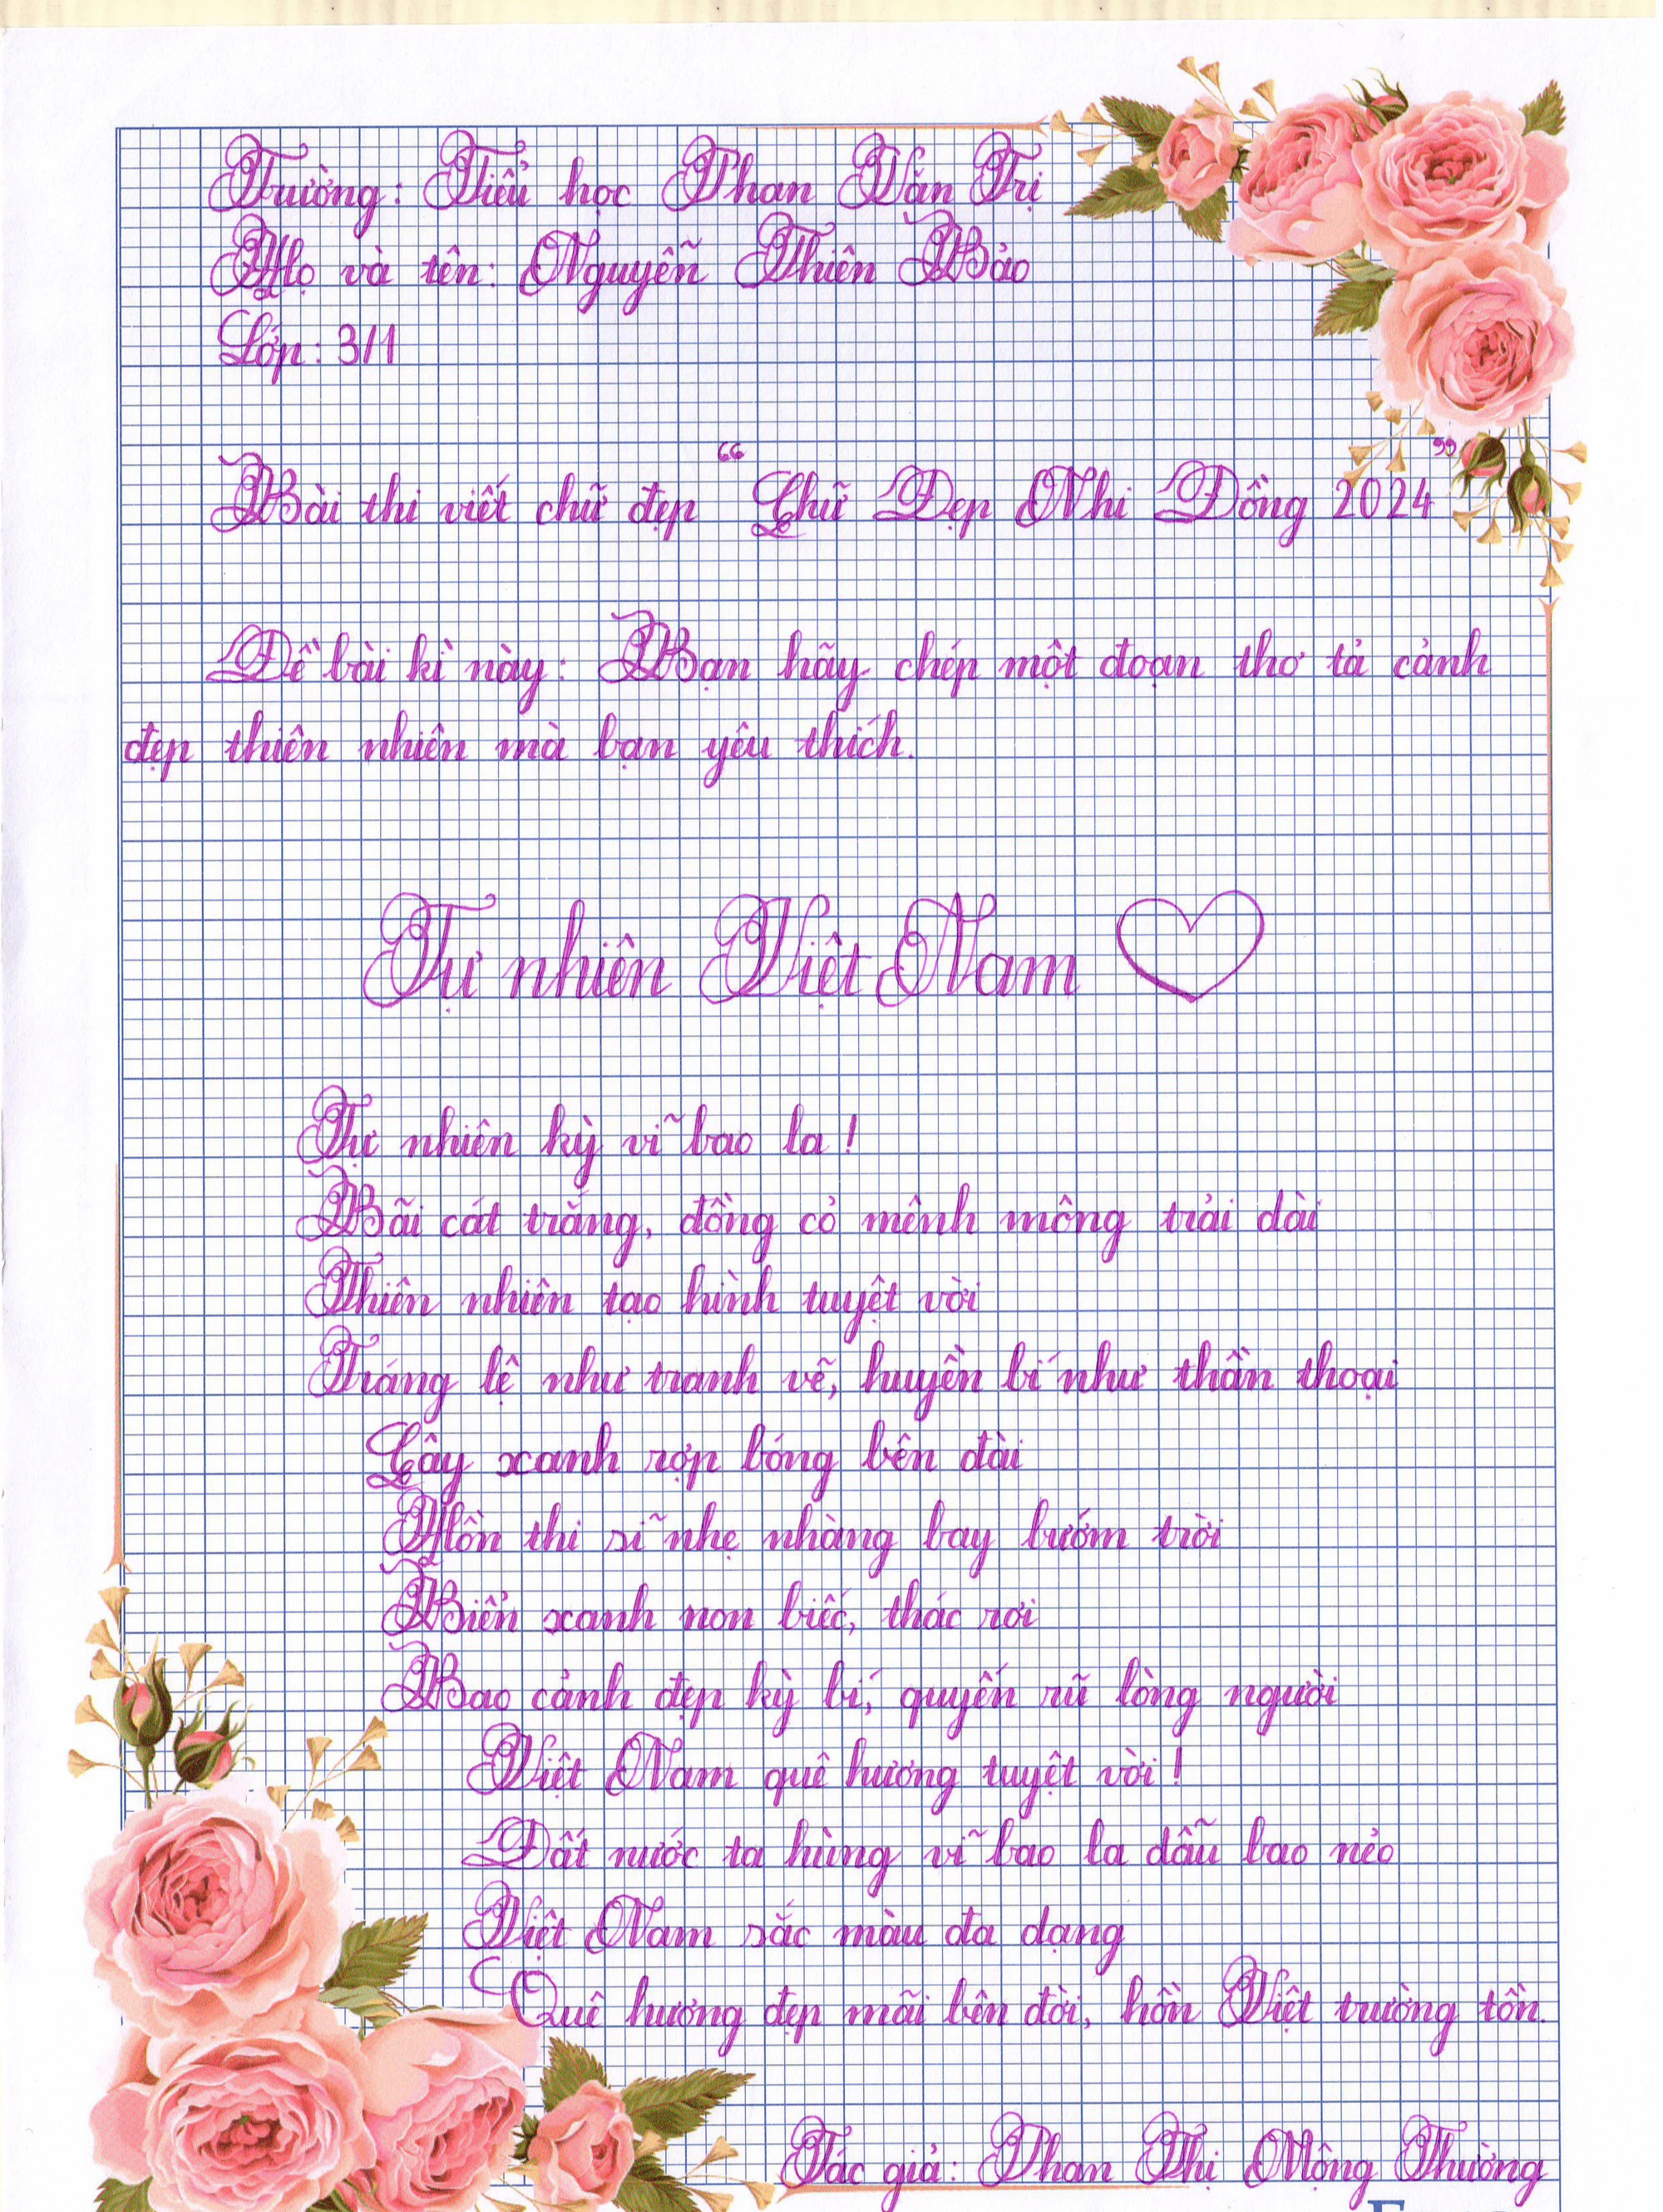 Trường: Tiểu học Phan Văn Trị
Họ và tên: Nguyễn Thiên Bảo
Lớp: 3/1
Bài thi viết chữ đẹp “Chữ Đẹp Nhi Đồng 2024”
Đề bài kì này: Bạn hãy chép một đoạn thơ tả cảnh
đẹp thiên nhiên mà bạn yêu thích.
Tự nhiên Việt Nam
Tự nhiên kỳ vĩ bao la!
Bãi cát trắng, đồng cỏ mênh mông trải dài
Thiên nhiên tạo hình tuyệt vời
Tráng lệ như tranh vẽ, huyền bí như thần thoại
Cây xanh rợp bóng bên đài
Hồn thi sĩ nhẹ nhàng bay bướm trời
Biển xanh non biếc, thác rơi
Bao cảnh đẹp kỳ bí, quyến rũ lòng người
Việt Nam quê hương tuyệt vời!
Đất nước ta hùng vĩ bao la dẫu bao nẻo
Việt Nam sắc màu đa dạng
Quê hương đẹp mãi bên đời, hồn Việt trường tồn.
Tác giả: Phan Thị Mộng Thường